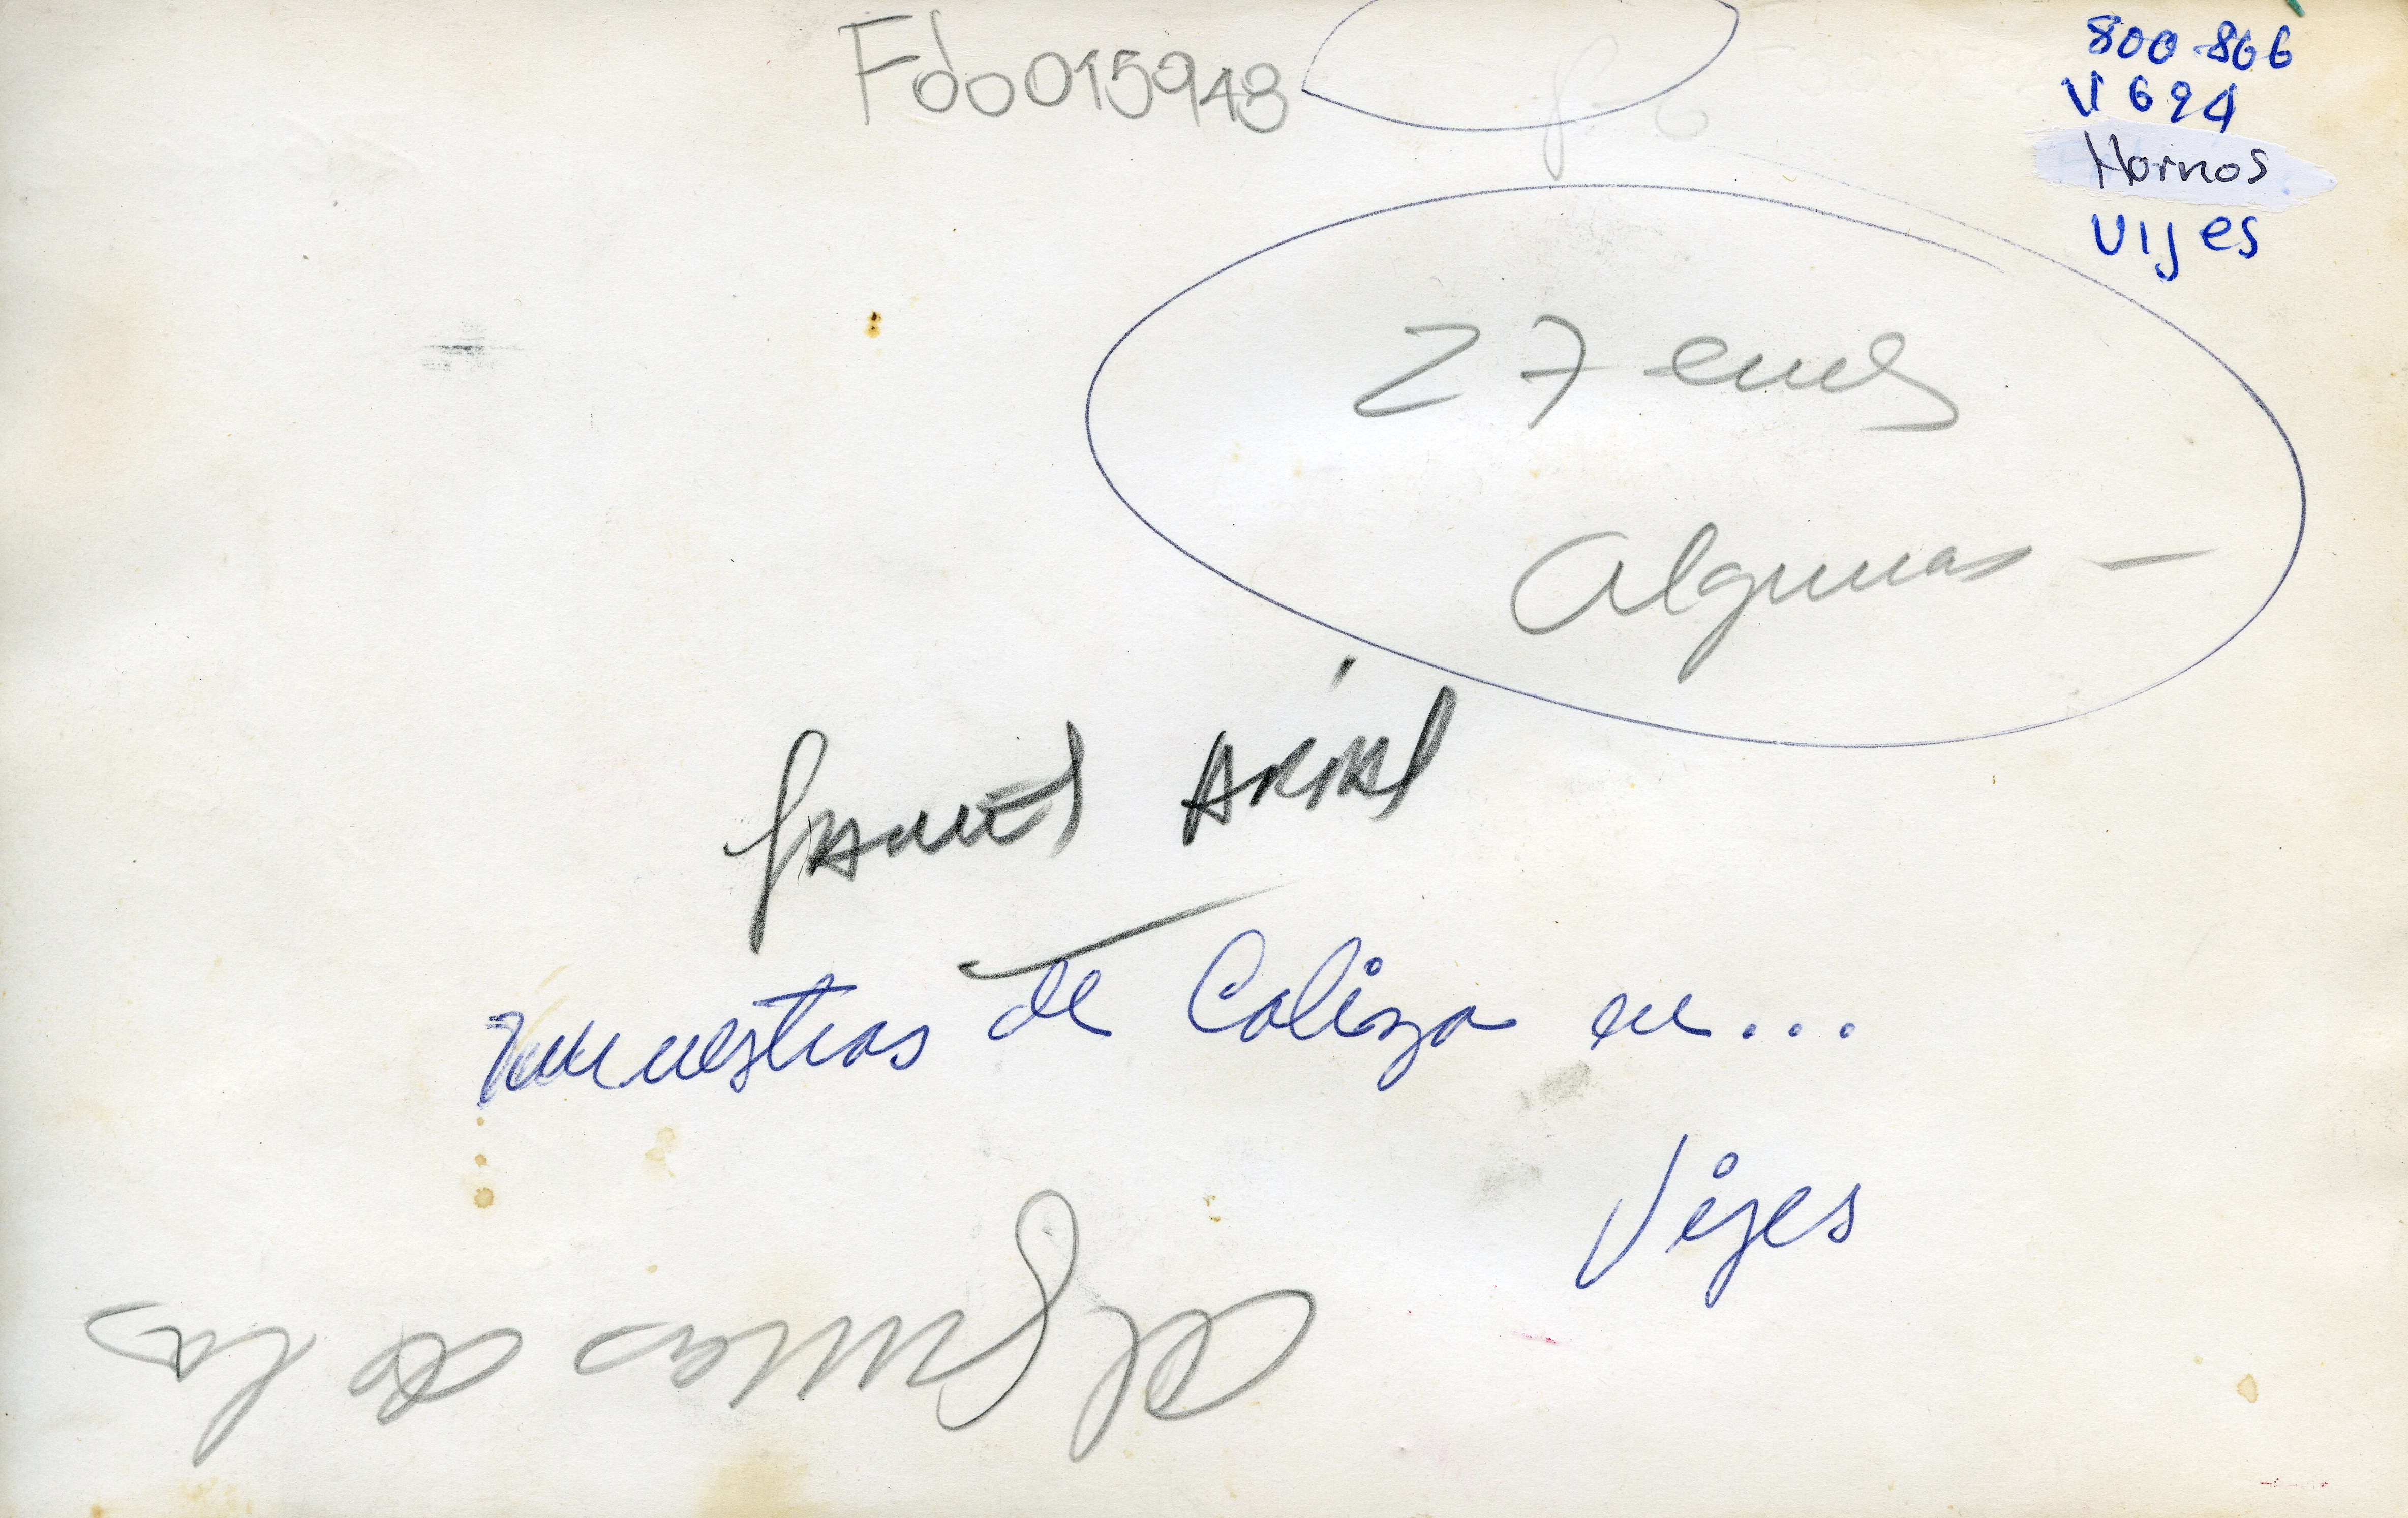 Fdo015948
800-866
V 694
Hornos
Vijes
27 cms
Algunas —
James Arias
muestras de Caliza en...
Vijes
Algunas de las